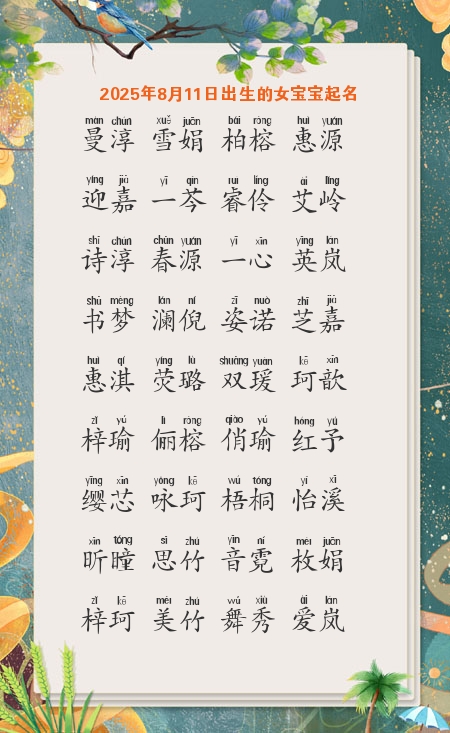 2025年8月11日出生的女宝宝起名
màn chún xuě juān bái róng huì yuán
曼淳 雪娟 柏榕 惠源
yíng jiā yī qín ruì líng ài lǐng
迎嘉 一芩 睿伶 艾岭
shī chún chūn yuán yī xīn yīng lán
诗淳 春源 一心 英岚
shū mèng lán ní zī nuò zhī jiā
书梦 澜倪 姿诺 芝嘉
huì qí yíng lù shuāng yuàn kē xīn
惠淇 荧璐 双瑗 珂歆
zǐ yú lì róng qiào yú hóng yú
梓瑜 俪榕 俏瑜 红予
yīng xīn yǒng kē wú tóng yí xī
缨芯 咏珂 梧桐 怡溪
xīn tóng sī zhú yīn ní méi juān
昕瞳 思竹 音霓 枚娟
zǐ kē měi zhú wǔ xiù ài lán
梓珂 美竹 舞秀 爱岚